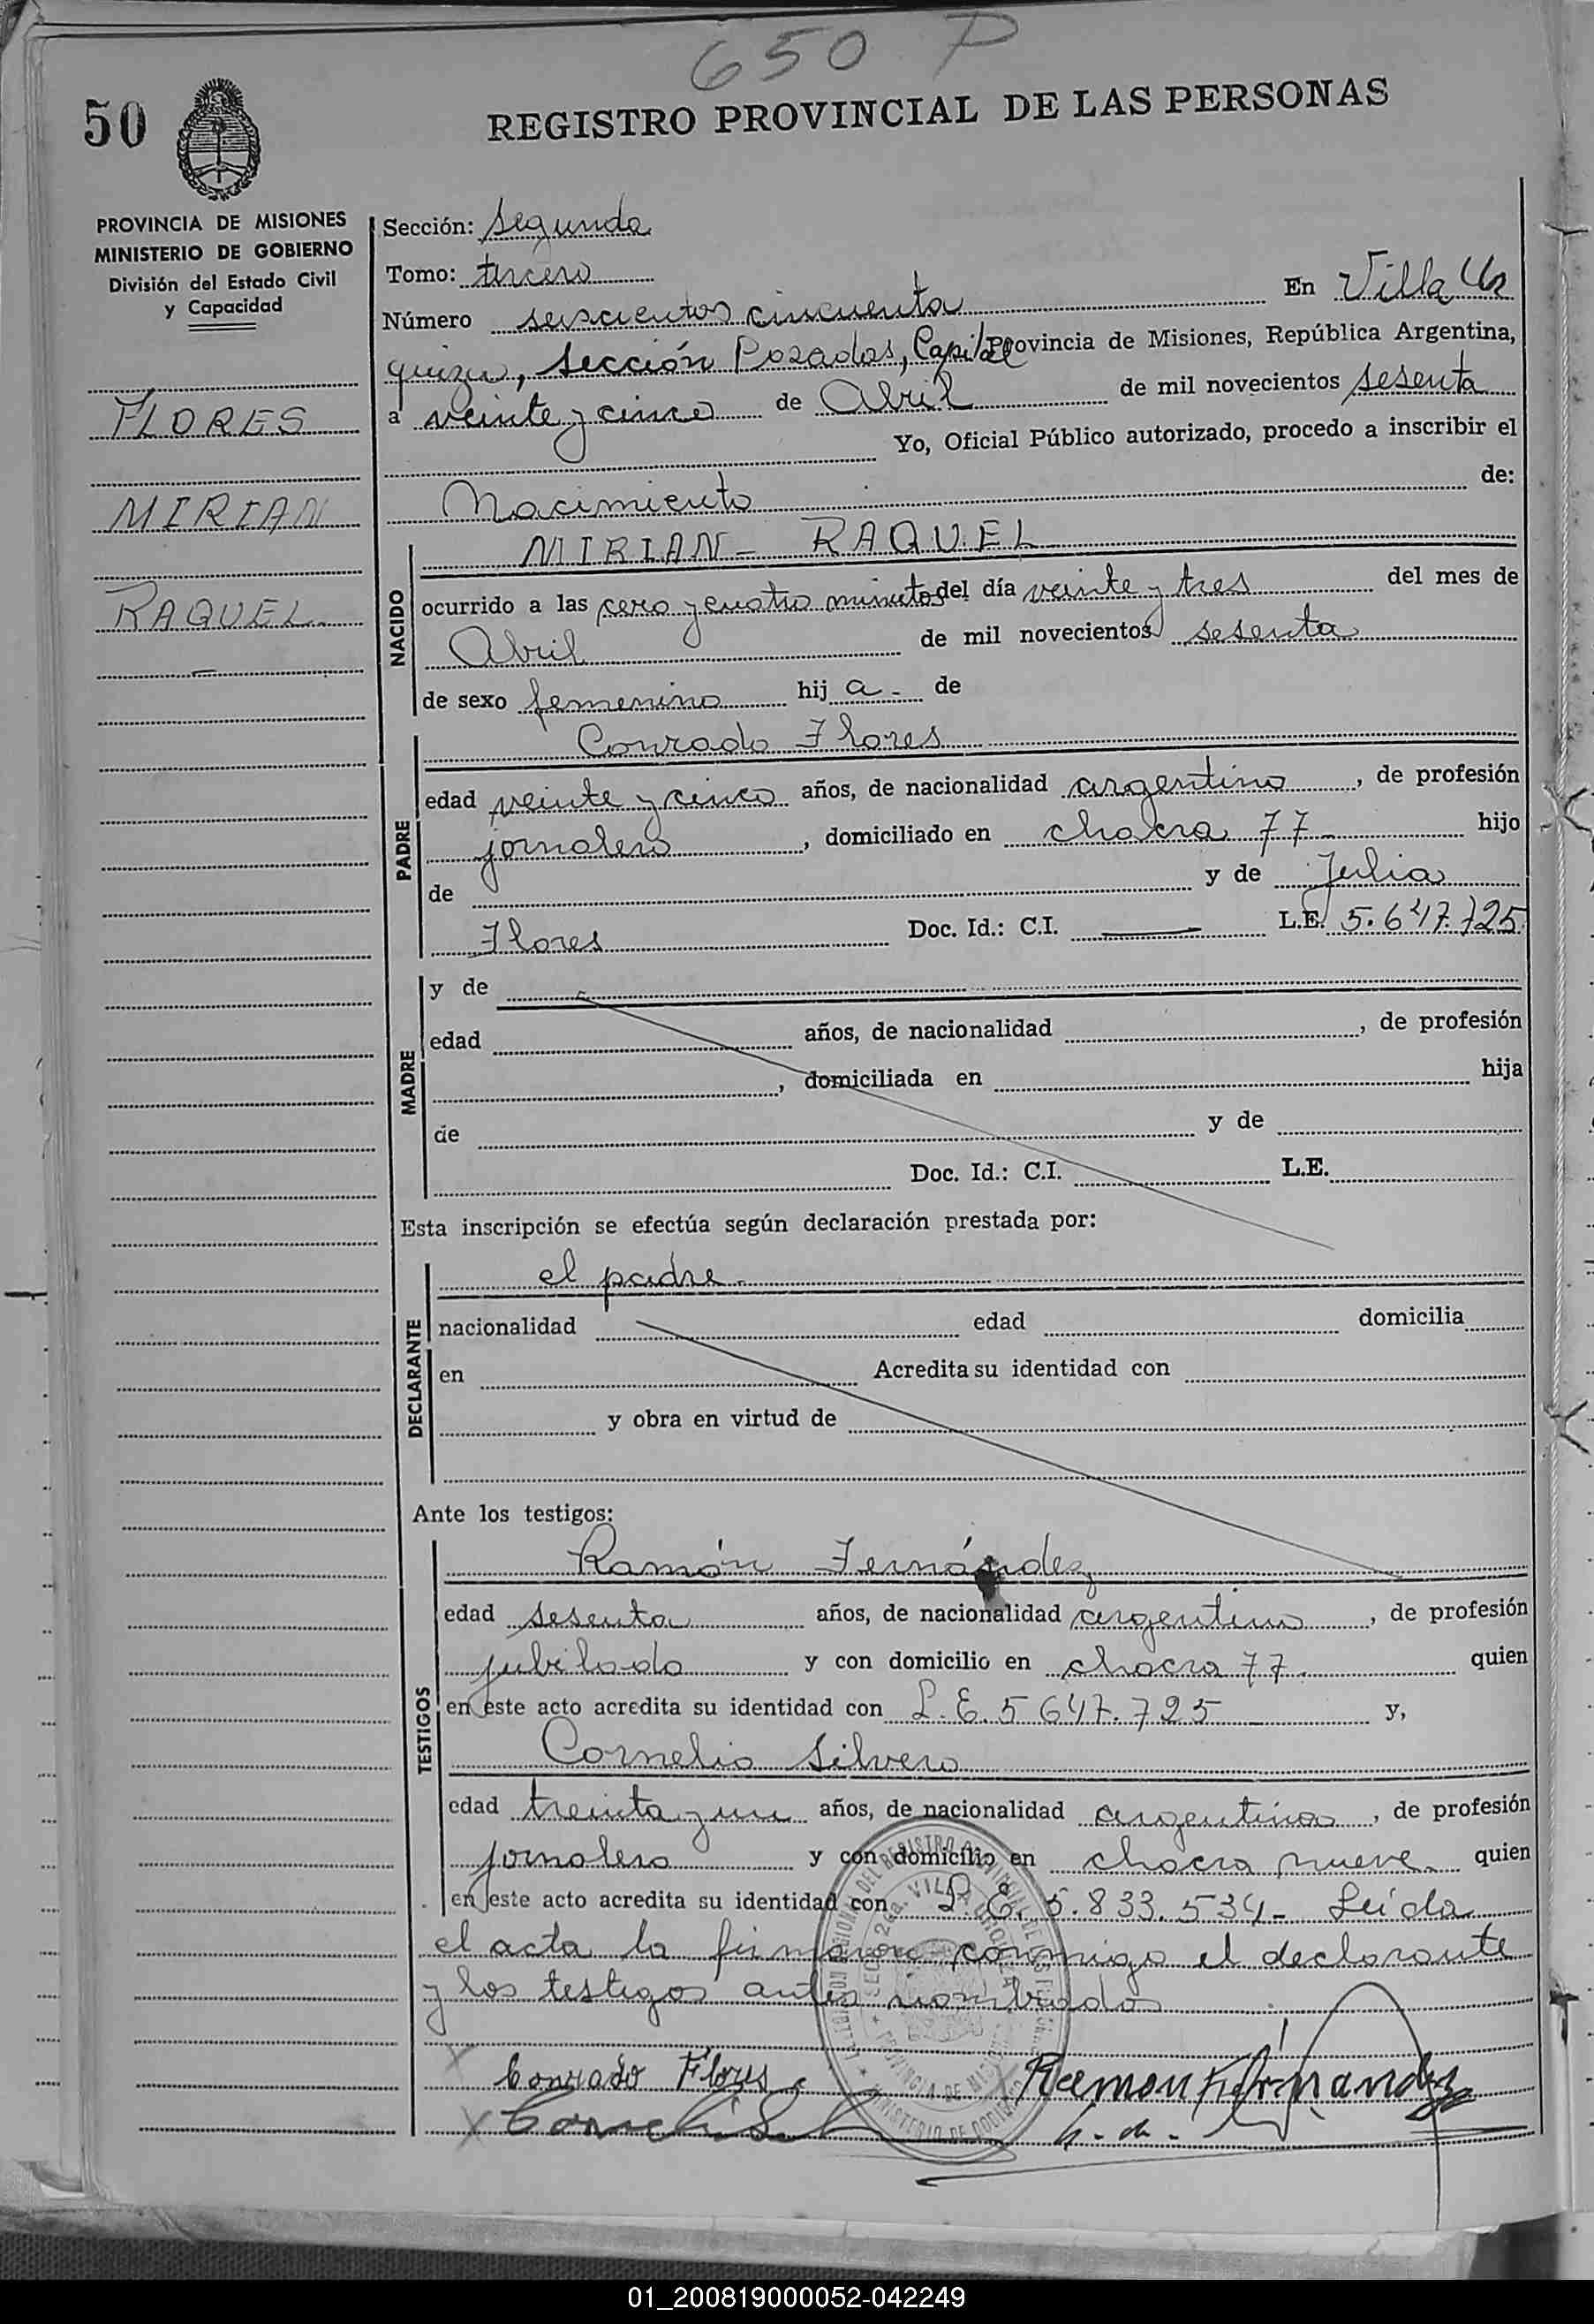 650 P
50
REGISTRO PROVINCIAL DE LAS PERSONAS
PROVINCIA DE MISIONES
MINISTERIO DE GOBIERNO
División del Estado Civil
y Capacidad
FLORES
MIRIAN
RAQUEL
Sección: Segunda
Tomo: tercero
Número seiscientos cincuenta En Villa Ur
quiza, sección Posadas, Capital Provincia de Misiones, República Argentina,
a veinte y cinco de Abril de mil novecientos sesenta
Yo, Oficial Público autorizado, procedo a inscribir el
Nacimiento de:
NACIDO
MIRIAN - RAQUEL
ocurrido a las cero y cuatro minutos del día veinte y tres del mes de
Abril de mil novecientos sesenta
de sexo femenino hij a - de
PADRE
Conrado Flores
edad veinte y cinco años, de nacionalidad argentino, de profesión
jornalero, domiciliado en chacra 77 - hijo
de y de Julia
Flores Doc. Id.: C.I. L.E. 5.647.725
MADRE
y de
edad años, de nacionalidad , de profesión
, domiciliada en hija
de y de
Doc. Id.: C.I. L.E.
Esta inscripción se efectúa según declaración prestada por:
DECLARANTE
el padre -
nacionalidad edad domicilia
en Acredita su identidad con
y obra en virtud de
Ante los testigos:
TESTIGOS
Ramón Fernández
edad sesenta años, de nacionalidad argentino, de profesión
jubilado y con domicilio en chacra 77. quien
en este acto acredita su identidad con L.E. 5647.725 y,
Cornelio Silvero
edad treinta y un años, de nacionalidad argentino, de profesión
jornalero y con domicilio en chacra nueve - quien
en este acto acredita su identidad con L.E. 5.833.534 - Leída
el acta la firmaron conmigo el declarante
y los testigos antes nombrados
Conrado Flores Ramon Fernandez
01_200819000052-042249